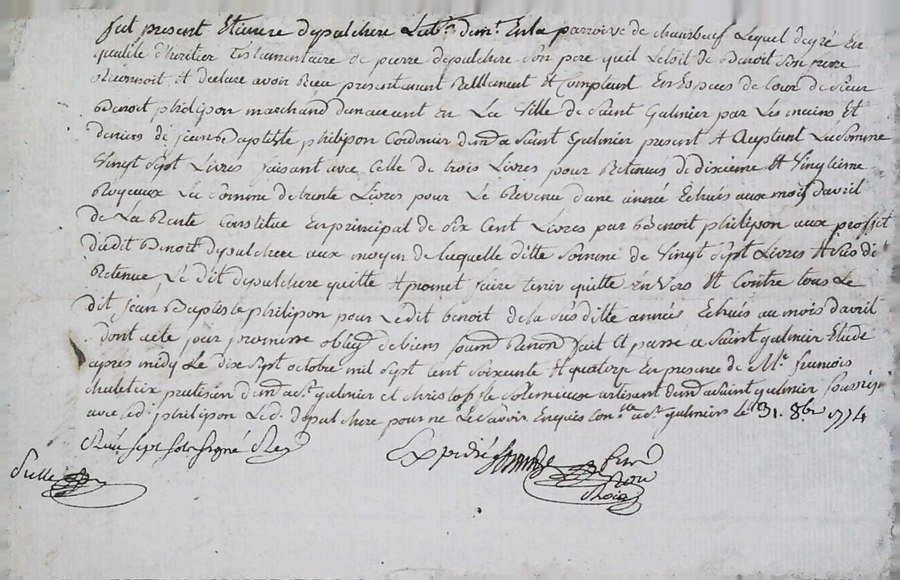 fut present Etienne depalchere Lab.r dem.t En la parroisse de chamboeuf Lequel degré En
qualité d'heritier Testamentaire de pierre depalchere son pere quil Letoit de Benoit son frere
Reconnoit Et declare avoir Reçu presentement Réellement Et Comptant En Espece de Cour de Sieur
Benoit philipon marchand demeurant En La Ville de Saint Galmier par Les mains Et
deniers de jean Baptiste philipon Cordonier dem.t a Saint Galmier present Et acceptant La Somme
Vingt Sept Livres faisant avec Celle de trois Livres pour Retenues de dixieme Et Vingtieme
Royeaux La Somme de trente Livres pour Le Revenu dune année Echues aux mois davril
de La Rente Constitué En principal de Six Cent Livres par Benoit philipon aux proffit
dudit Benoit depalchere aux moyen de laquelle ditte Somme de Vingt Sept Livres Et Sus di
Retenue Le dit depalchere quitte Et promet faire tenir quitte En Vers Et Contre tous Le
dit Jean Baptiste philipon pour Ledit benoit de la Sus ditte année Echues au mois davril
dont acte par promesse oblig.n de biens Soum.n Renon.n fait Et passé a Saint galmier Etude
apres midy Le dix Sept octobre mil Sept Cent Soixante Et quatorze En presence de M.e francois
praticien dem.t a S.t galmier et christophle artisant dem.t a Saint galmier Soussign
avec led.t philipon Le d.t depalchere pour ne Le Savoir Enquis Con.lé a S.t galmier le 31. 8bre 1774
Reçu Sept Sols Signé
Expedié